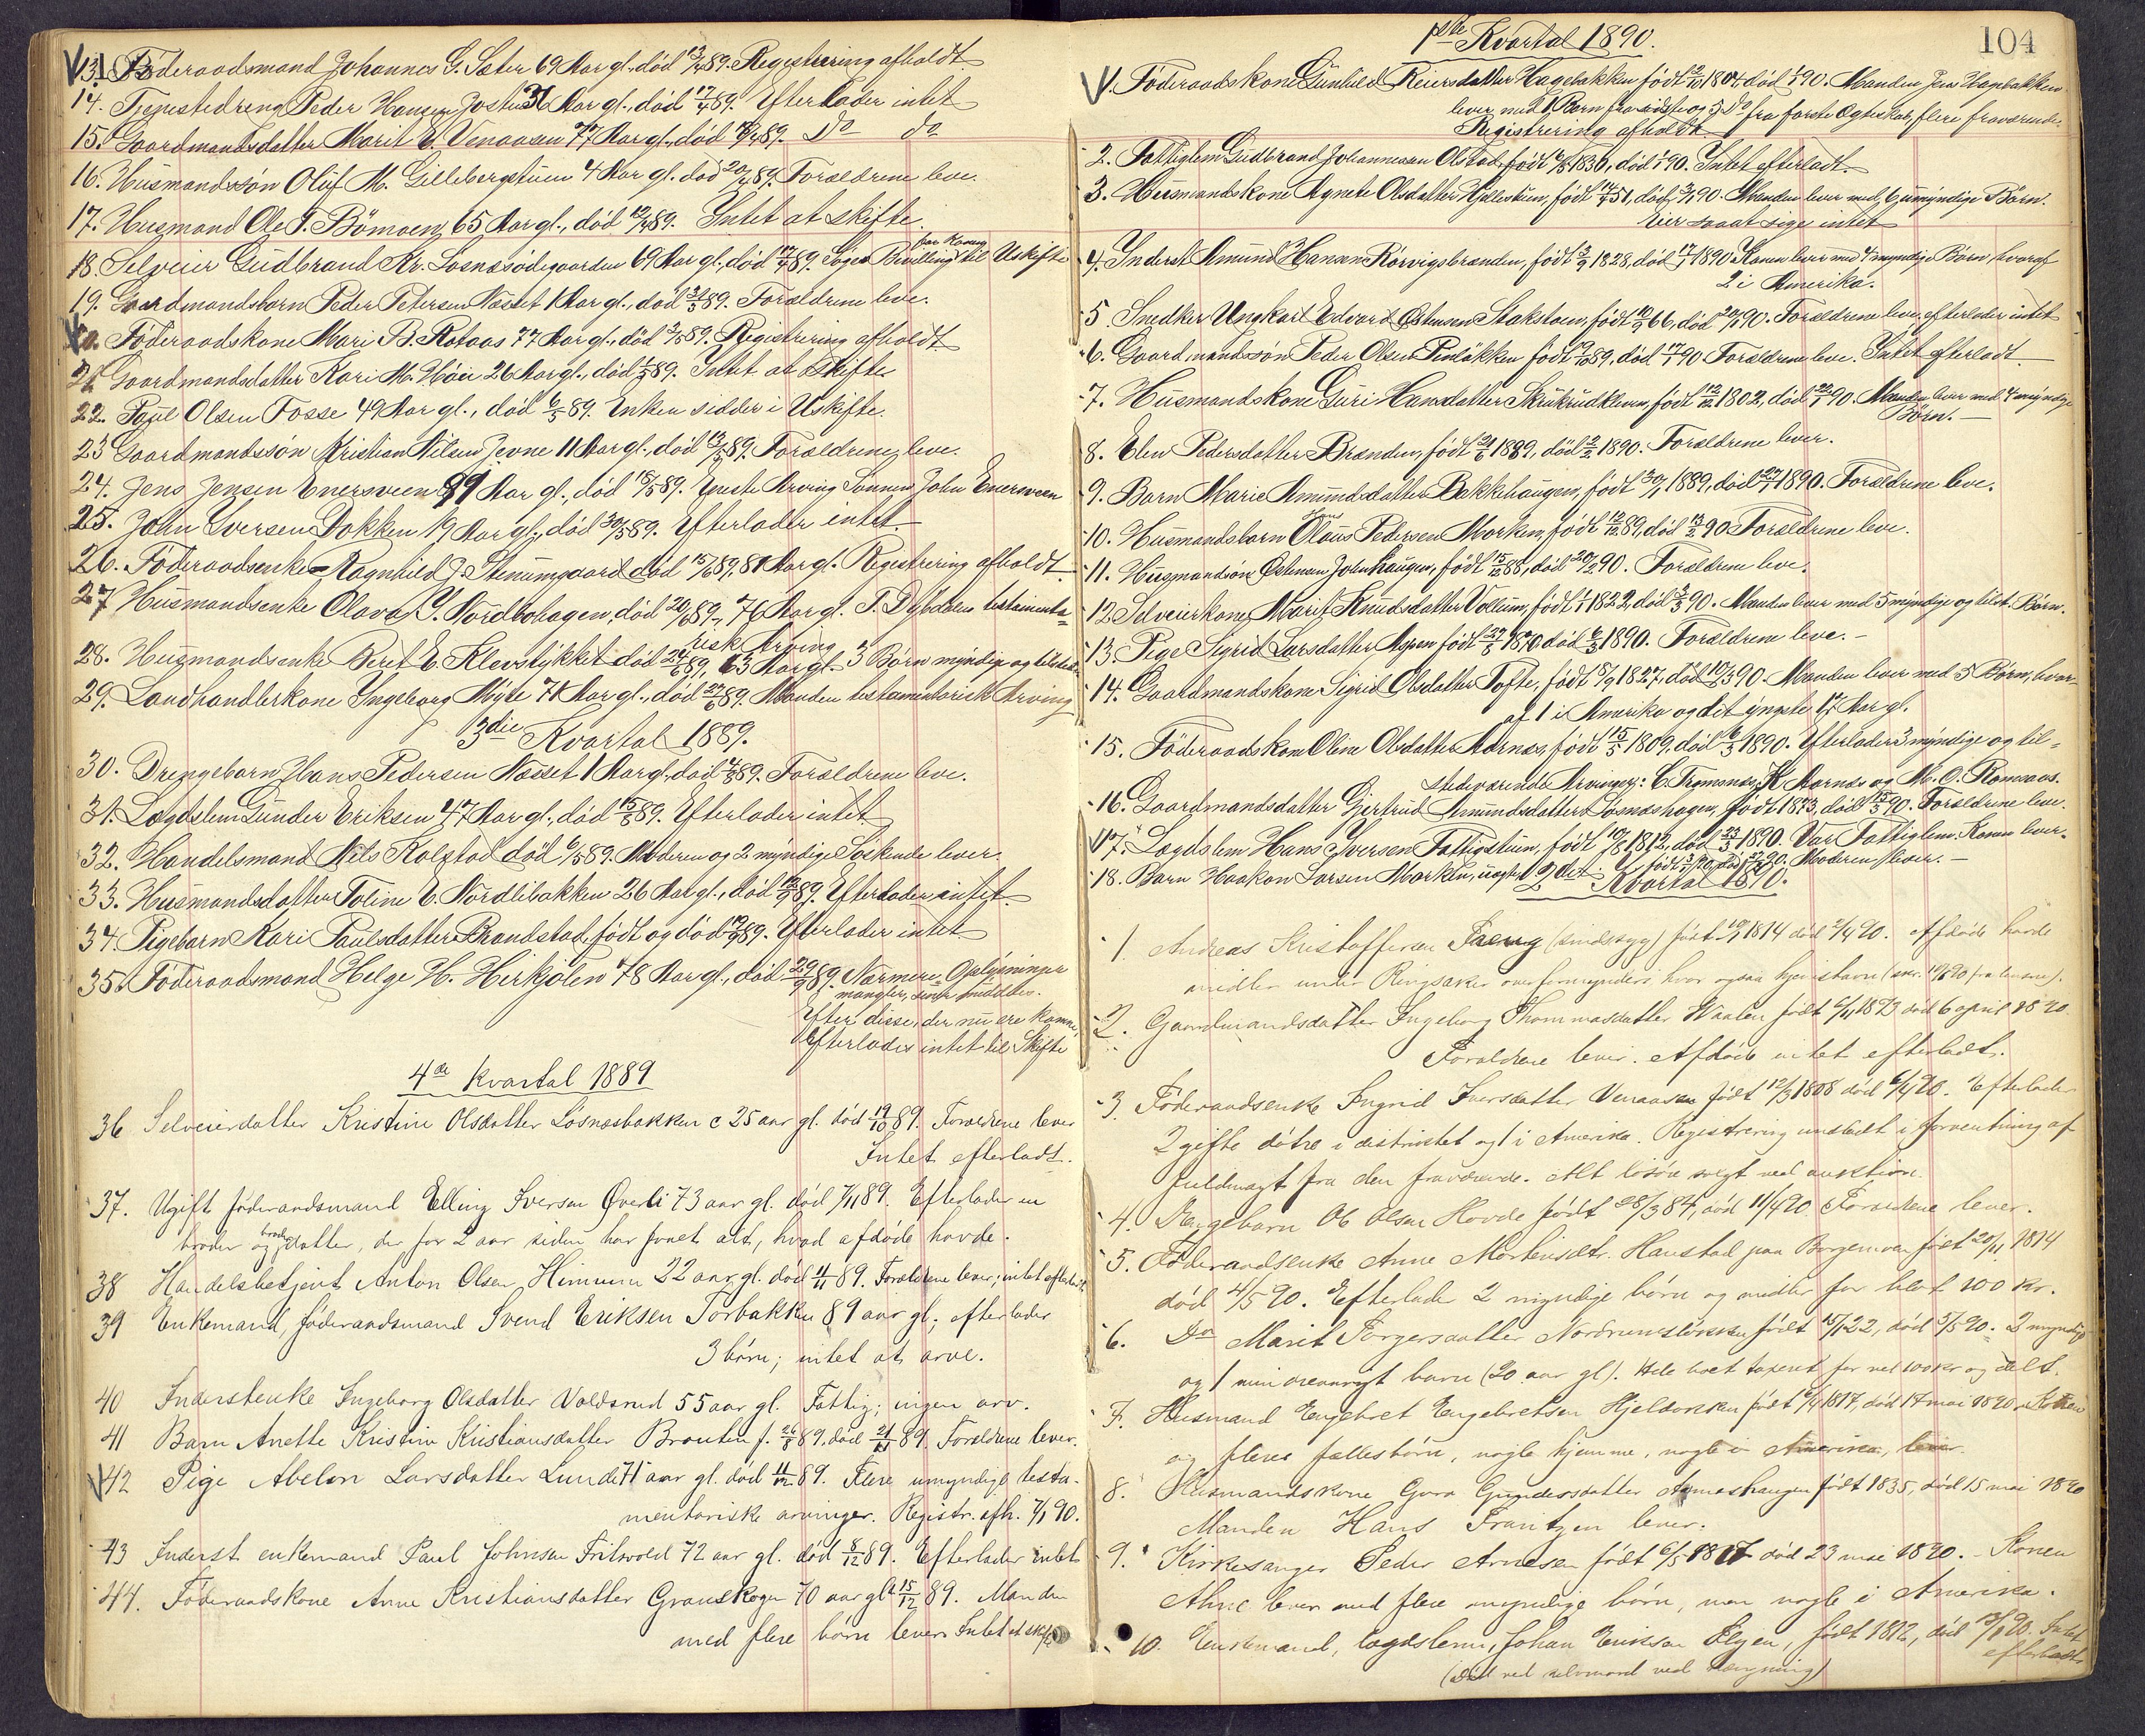 13. Föderaadsmand Johannes G. Sæter 69 Aar gl., död 13/4 89. Registrering afholdt.
14. Tjenestedreng Peder Hansen Jostu 31 Aar gl., död 17/4 89. Efterlader intet
15. Gaardmandsdatter Marit E. Venaasen 77 Aar gl., död 89. Do do
16. Husmandssön Oluf M. Gillebergstuen 4 Aar gl. död 20/4 89. Forældrene leve.
17. Husmand Ole T. Bömoen, 65 Aar gl., död 12/4 89. Intet at skifte.
18. Selveier Gudbrand Kr. Losnæsödegaarden 69 Aar gl., död 17/4 89. Söger Bevilling til Uskifte
19. Gaardmandsbarn Peder Petersen Næsset 1 Aar gl., död 89. Forældrene leve.
20. Föderaadskone Mari B. Rotaas 77 Aar gl., död 2/5 89. Registrering afholdt
21 Gaardmandsdatter Kari M. Höie 26 Aar gl., död 89. Intet at Skifte
22. Poul Olsen Fosse 49 Aar gl., död 6/5 89. Enken sidder i Uskifte.
23 Gaardmandssön Kristian Nilsen Jevne 11 Aar gl., död 13/5 89. Forældrene leve.
24. Jens Jensen Enersveen 89 Aar gl., död 18/5 89. Eneste Arving Sönnen John Enersveen
25. John Iversen Dokken 19 Aar gl., död 30/5 89. Efterlader intet.
26. Föderaadsenke Ragnhild J. Stenumgaard död 15/6 89, 81 Aar gl. Registrering afholdt
27 Husmandsenke Olava Y. Nordbohagen, död 20/6 89, 76 Aar gl. T. Dybdalen testamenta=
risk Arving
28. Husmandsenke Berit E. Klevstykket död 89, 63 Aar gl. 3 Börn myndige og tilstede
29. Landhandlerkone Ingeborg Myte 71 Aar gl., död 27/6 89. Manden testamentarisk Arving
3die Kvartal 1889.
30. Drengebarn Hans Pedersen Næsset 1 Aar gl., död 89. Forældrene leve.
31. Lægdslem Gunder Eriksen 47 Aar gl., död 89. Efterlader intet
32. Handelsmand Nils Kolstad död 6/8 89. Moderen og 2 myndige Söskende lever.
33. Husmandsdatter Toline E. Nordlibakken 26 Aar gl., död 89. Efterlader intet.
34. Pigebarn Kari Paulsdatter Brandstad, født og död 89. Efterlader intet
35. Föderaadsmand Helge H. Hirkjölen 78 Aar gl., död 29/9 89. Nærmere Oplysninger
mangler,
Efter disse, der nu ere komne,
Efterlades intet til Skifte
4de kvartal 1889
36 Selveierdatter Kristine Olsdatter Losnæsbakken c 25 aar gl. död 19/10 89. Forældrene lever
Intet efterladt.
37. Ugift föderaadsmand Elling Iversen Överli 73 aar gl. död 7/11 89. Efterlader en
broder og broderdatter, der for 2 aar siden har faaet alt, hvad afdöde havde.
38 Handelsbetjent Anton Olsen Himmen 22 aar gl. död 11/11 89. Forældrene lever; intet efterladt
39 Enkemand, föderaadsmand Svend Eriksen Torbakken 89 aar gl; efterlader
3 börn; intet at arve.
40 Inderstenke Ingeborg Olsdatter Voldsrud 55 aar gl. Fattig; ingen arv.
41 Barn Anette Kristine Kristiansdatter Brouten f. 26/8 89, död 21/11 89. Forældrene lever.
42 Pige Abelon Larsdatter Lunde 71 aar gl. död 11/12 89. Flere umyndige testa-
mentariske arvinger. Registr. afh. 7/1 90.
43 Inderst enkemand Paul Johnsen Fritsvold 72 aar gl. död 8/12 89. Efterlader intet
44. Föderaadskone Anne Kristiansdatter Granskogen 70 aar gl. 15/12 89. Manden
med flere börn lever. Intet at skifte
104
1ste Kvartal 1890.
1. Föderaadskone Gunhild Reiersdatter Hagebakken født 1804, död 90. Manden Jens Hagebakken
lever med 1 Barn fra sidste og 5 Do fra første Ægteskab, flere fraværende.
Registrering afholdt
2. Fattiglem Gudbrand Johannessen Olstad, født 1830, död 90. Intet efterladt.
3. Husmandskone Agnete Olsdatter Hjellestuen, født 51, död 90. Manden lever med 6 umyndige Börn.
Eier saaat sige intet
4. Inderst Amund Hansen Rörvigsbrænden, født 1828, död 17/1 1890. Konen lever med 4 myndige Börn hvoraf
2 i Amerika.
5 Snedker Ungkarl Edvard Østensen Stakstoen, født 66, död 20/1 90. Forældrene leve, efterlader intet
6. Gaardmandssön Peder Olsen Penbakken født 89, död 17/1 90 Forældrene leve. Intet efterladt
7. Husmandskone Guri Hansdatter Skrukrudkleven, født 1802, död 22/1 90. Manden lever med 4 myndige
Börn.
8. Elen Pedersdatter Brænden, født 1889, död 2/2 1890. Forældrene lever.
9. Barn Marie Amundsdatter Bakkehaugen, født 30/1 1889, död 27/1 1890. Forældrene leve.
10. Husmandsbarn Olaus Pedersen Morken, født 89, död 90. Forældrene leve.
11. Husmandssön Østensen Johnhaugen, født 15/12 88, död 20/2 90. Forældrene leve.
12 Selveierkone Marit Knudsdatter Vollum, født 1/1 1822, död 3/3 90. Manden lever med 5 myndige og tilst. Börn.
13. Pige Sigrid Larsdatter Aspen født 1870 död 6/3 1890. Forældrene leve.
14. Gaardmandskone Sigrid Olsdatter Tofte, født 1827, död 10/3 90. Manden lever med 5 Börn, hvor-
af 1 i Amerika og det yngste 17 Aar gl.
15. Föderaadskone Oline Olsdatter Aarnæs, født 15/5 1809, död 6/3 1890. Efterlader 3 myndige og til=
stedeværende Arvinger: C. Tromsnæs, K Aarnæs og M. O. Ramsaas.
16. Gaardmandsdatter Gjertrud Amundsdatter Losnæshagen, født 1873, död 15/3 90. Forældrene leve.
17. Lægdslem Hans Iversen Fattigstuen, født 1812, död 23/3 1890. Var Fattiglem. Konen lever.
18. Barn Haakon Larsen Morken, født död 90. Moderen lever.
2det Kvartal 1890.
1. Andreas Kristoffersen (sindssyg) født 1814 död 90. Afdöde havde
midler under Ringsaker overformynderi, hvor ogsaa hjemstavn
2. Gaardmandsdatter Ingeborg Thommasdatter Waalen født 1873 död 6 april 1890.
Forældrene lever. Afdöde intet efterladt.
3. Föderaadsenke Ingrid Iversdatter Venaasen født 12/3 1808 död 6/4 90. Efterlader
2 gifte dötre i distriktet og 1 i Amerika. Registrering undladt i forventning af
fuldmagt fra den fraværende. Alt lösöre solgt ved auktion.
4. Drengebarn Ole Olsen Hovde født 28/3 84, död 11/4 90. Forældrene lever.
5. Föderaadsenke Anne Mortensdtr. Haustad paa Borgemoen født 20/11 1814
död 4/5 90. Efterlader 2 myndige börn og midler for blot 100 kr.
6. Do Marit Torgersdatter født 15/1 22, död 5/5 90. 2 myndige
og 1 mindreaarigt barn (20 aar gl). Hele boet taxeret for ved 100 kr og delt.
7. Husmand Engebret Engebretsen født 1817, död 17 mai 1890. Konen
og flere fællesbörn, nogle hjemme, nogle i Amerika, lever.
8. Husmandskone Guro Gundersdatter født 1835, död 15 mai 1890
Manden Hans Frantzen lever.
9. Kirkesanger Peder Arnesen født 6/5 1817 död 23 mai 1890. Konen
lever med flere myndige börn, men nogle i Amerika.
10. Enkemand, lægdslem, Johan Eriksen født 1812, död 90. Intet
efterladt.
(Död ved selvmord ved hængning)